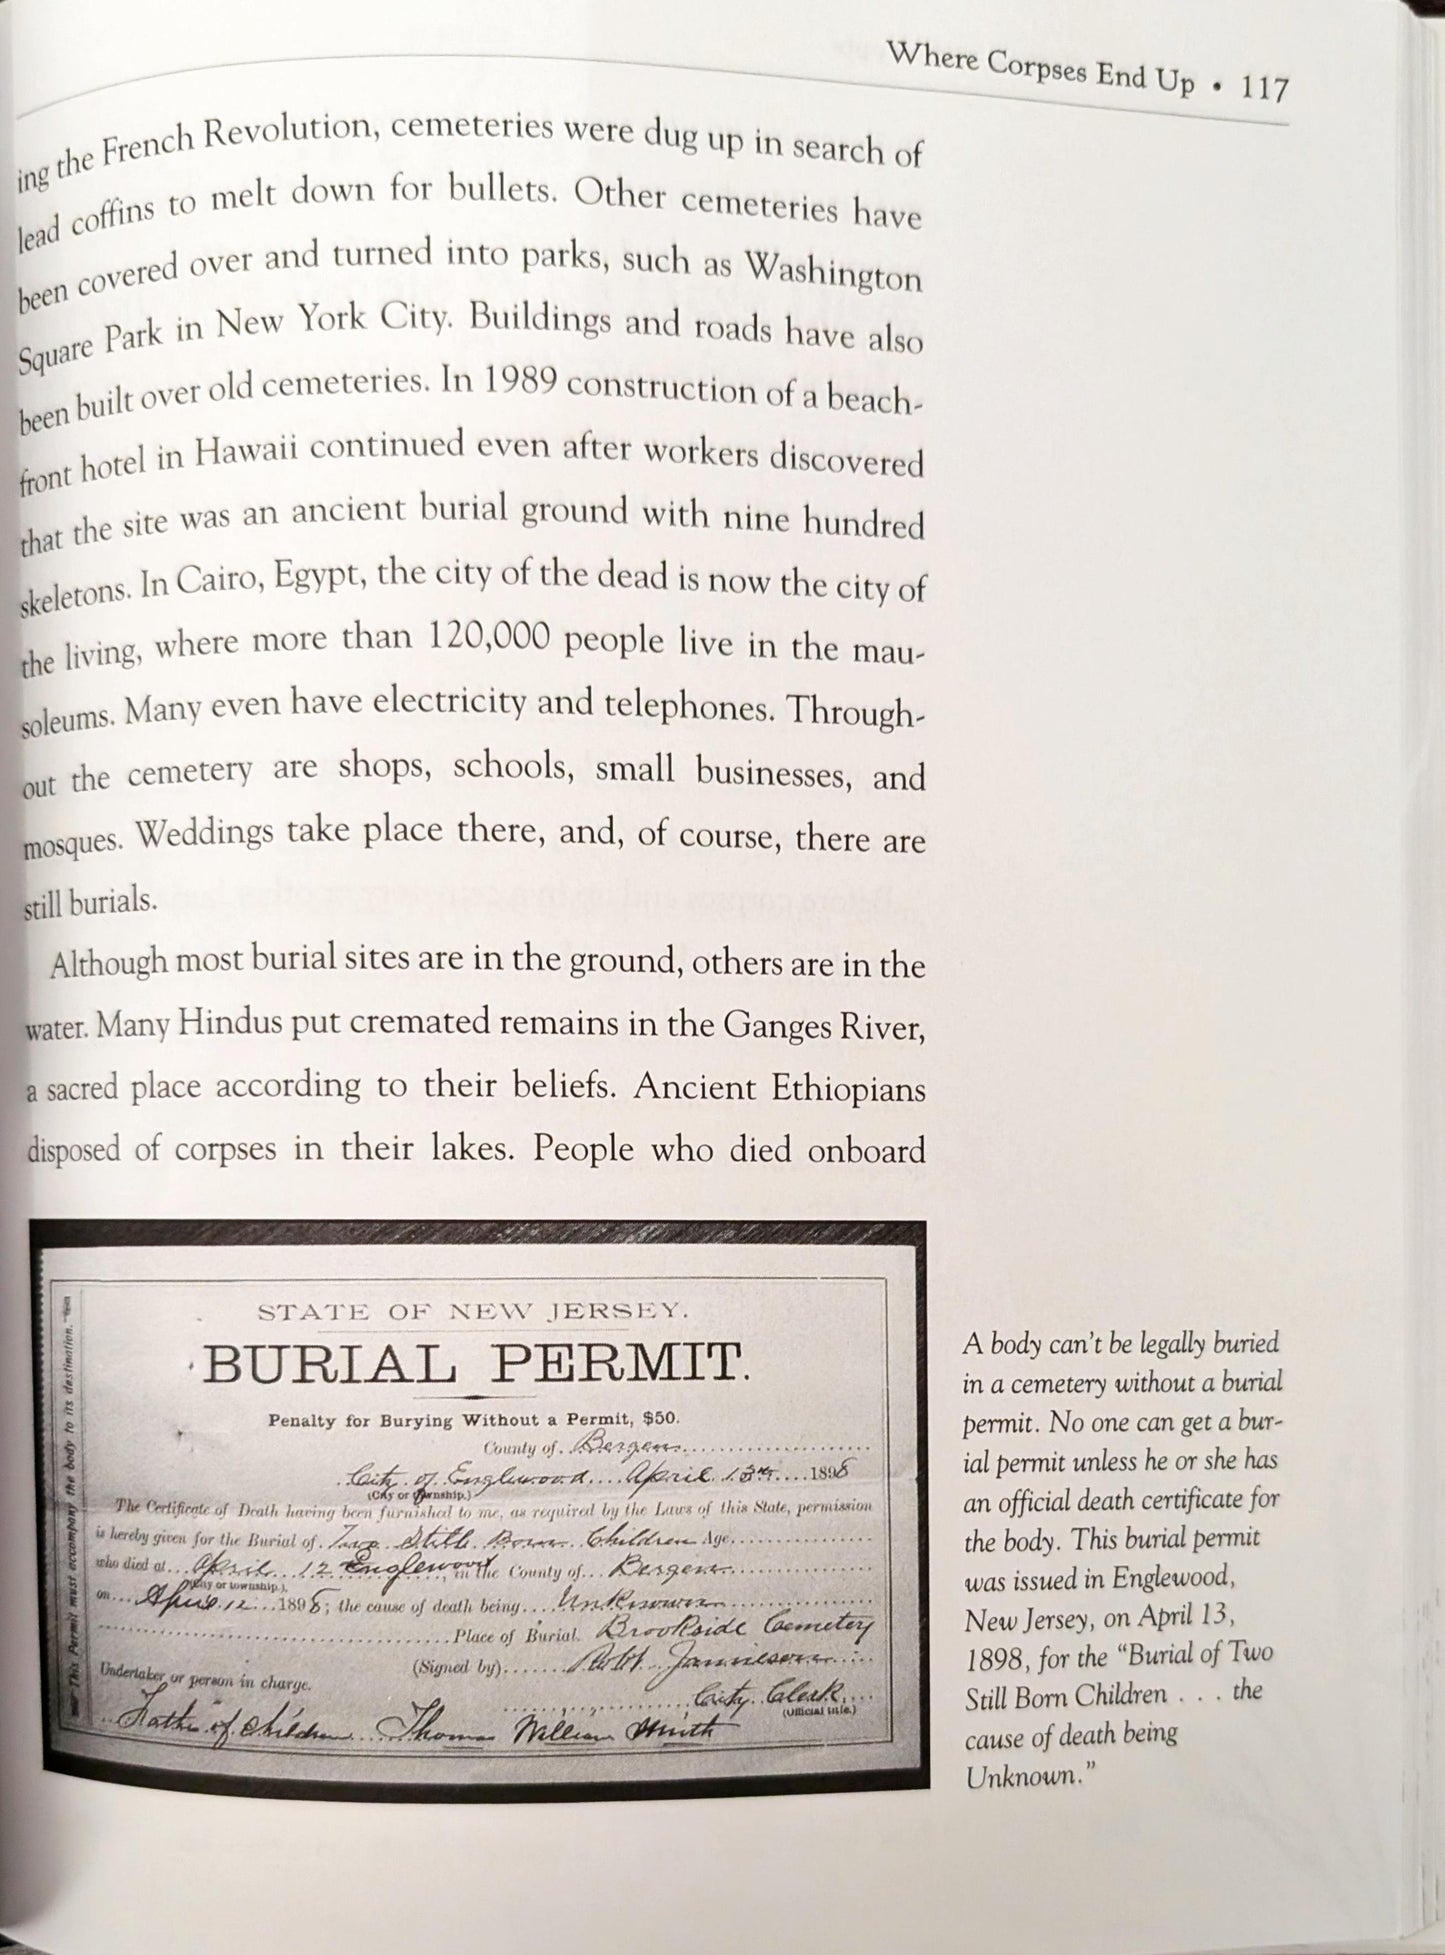 Where Corpses End Up • 117
ing the French Revolution, cemeteries were dug up in search of
lead coffins to melt down for bullets. Other cemeteries have
been covered over and turned into parks, such as Washington
Square Park in New York City. Buildings and roads have also
been built over old cemeteries. In 1989 construction of a beach-
front hotel in Hawaii continued even after workers discovered
that the site was an ancient burial ground with nine hundred
skeletons. In Cairo, Egypt, the city of the dead is now the city of
the living, where more than 120,000 people live in the mau-
soleums. Many even have electricity and telephones. Through-
out the cemetery are shops, schools, small businesses, and
mosques. Weddings take place there, and, of course, there are
still burials.
Although most burial sites are in the ground, others are in the
water. Many Hindus put cremated remains in the Ganges River,
a sacred place according to their beliefs. Ancient Ethiopians
disposed of corpses in their lakes. People who died onboard
This Permit must accompany the body to its destination.
STATE OF NEW JERSEY.
BURIAL PERMIT.
Penalty for Burying Without a Permit, $50.
County of. Bergen
City of Englewood.... April 13th....1898
(City or township.)
The Certificate of Death having been furnished to me, as required by the Laws of this State, permission
is hereby given for the Burial of. Two Still Born Children Age.
who died at... April 12 Englewood, in the County of... Bergen
(City or township.),
on... April 12...1898; the cause of death being.... Unknown
Place of Burial. Brookside Cemetery
(Signed by)...... Robt Jamieson
Undertaker or person in charge.
City Clerk
(Official title.)
Father of Children... Thomas William Smith
A body can't be legally buried
in a cemetery without a burial
permit. No one can get a bur-
ial permit unless he or she has
an official death certificate for
the body. This burial permit
was issued in Englewood,
New Jersey, on April 13,
1898, for the “Burial of Two
Still Born Children . . . the
cause of death being
Unknown.”